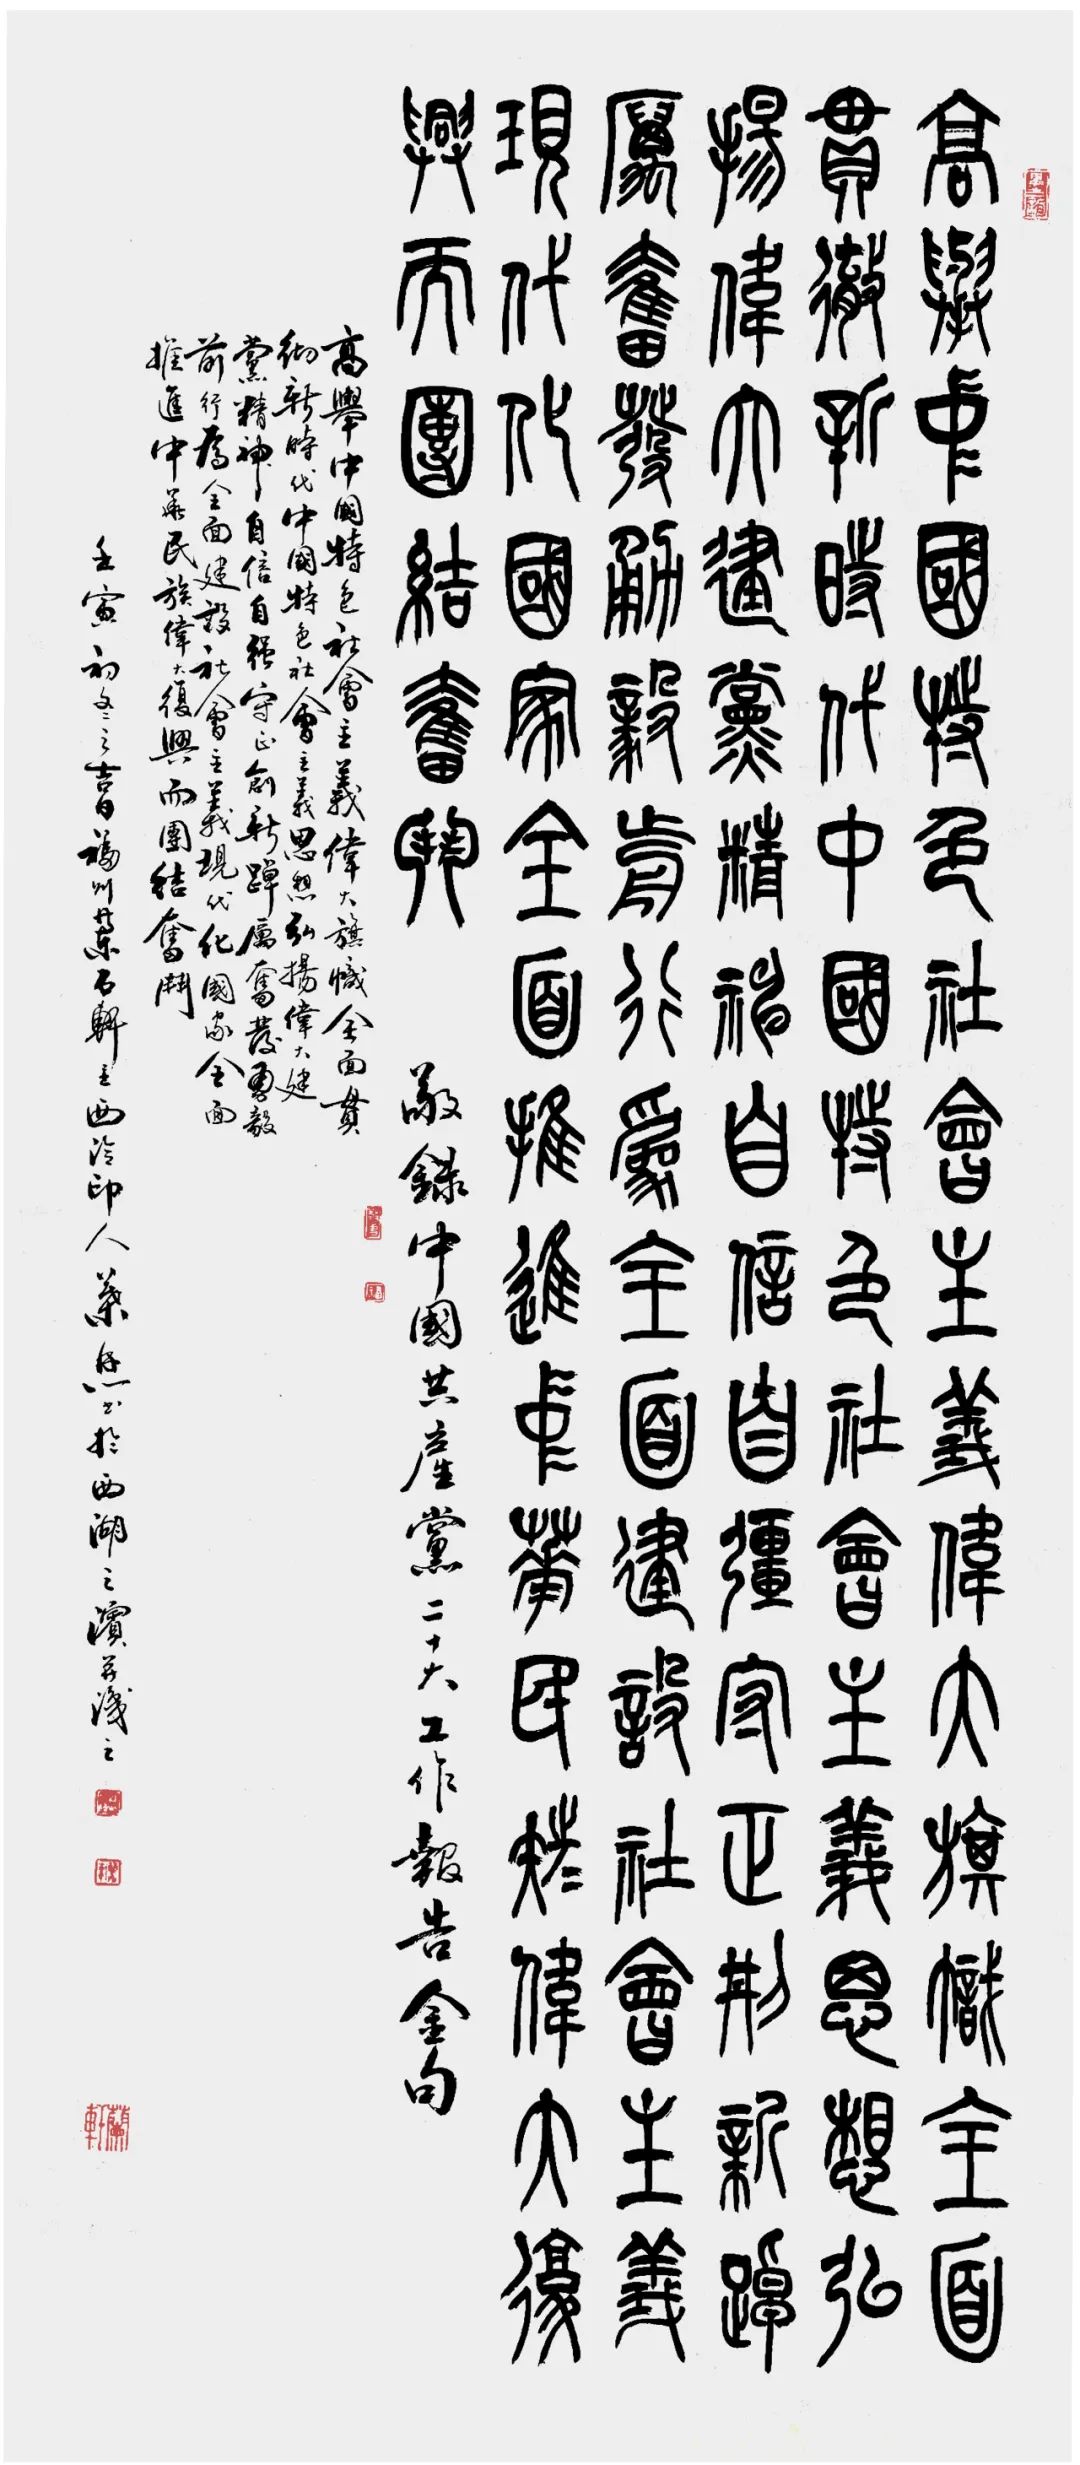 高舉中國特色社會主義偉大旗幟全面
貫徹新時代中國特色社會主義思想弘
揚偉大建黨精神自信自彊守正創新踔
厲奮發勇毅前行為全面建設社會主義
現代化國家全面推進中華民族偉大復
興而團結奮鬥
敬錄中國共產黨二十大工作報告金句
高舉中國特色社會主義偉大旗幟全面貫
徹新時代中國特色社會主義思想弘揚偉大建
黨精神自信自強守正創新踔厲奮發勇毅
前行為全面建設社會主義現代化國家全面
推進中華民族偉大復興而團結奮鬥
壬寅初冬之吉日福州石軒主西泠印人葉書於西湖之濱並識之